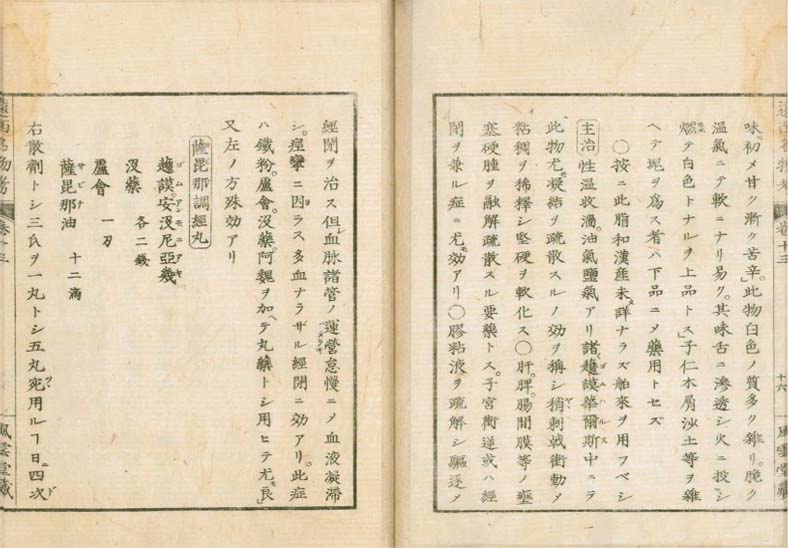 味初メ甘ク漸ク苦辛。此物白色ノ質多ク雜リ。脆ク
温氣ニテ軟ニナリ易ク。其味舌ニ滲透シ火ニ投シ
燃テ白色トナルヲ上品トス。子仁木屑沙土等ヲ雜
ヘテ塊ヲ爲ス者ハ下品ニメ藥用トセズ
〇按ニ此脂和漢産未タ詳ナラズ舶來ヲ用フベシ
主治 性温收濇。油氣鹽氣アリ諸護謨華爾斯中ニテ
此物尤凝結ヲ疏散スルノ効ヲ稱シ稍刺戟衝動メ
粘稠ヲ稀釋シ堅硬ヲ軟化ス〇肝。脾。腸間膜等ノ壅
塞硬腫ヲ融解疏散スル要藥トス。子宮衝逆或ハ經
閉ヲ兼ル症ニ尤モ効アリ〇膠粘液ヲ疏解シ驅逐メ
遠西名物考 卷十三 十六 風雲堂藏
經閉ヲ治ス但血脉諸管ノ運營怠慢ニメ血液凝滯
シ。痙攣ニ因ヲラス多血ナラザル經閉ニ効アリ。此症
ハ鐵粉。盧會。沒藥。阿魏ヲ加ヘテ丸藥トシ用ヒテ尤良
又左ノ方殊効アリ
薩毘那調經丸
護謨安沒尼亞幾
沒藥 各二錢
盧會 一刄
薩毘那油 十二滴
右散劑トシ三氏ヲ一丸トシ五丸宛用ルヿ日ニ四次